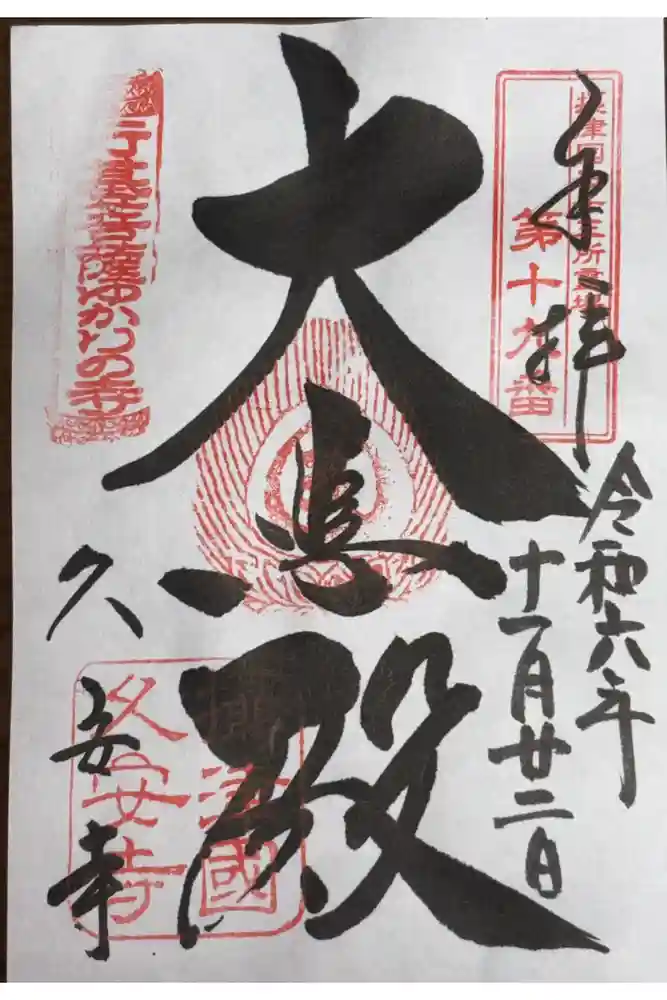 奉拝
摂津国三十三所霊場
第十九番
令和六年
十一月廿二日
大悲殿
行基菩薩ゆかりの寺
久安寺
摂津國
久安寺